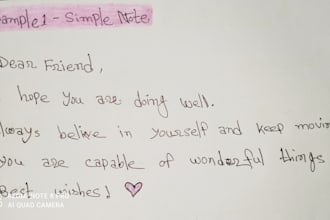 ample1 - Simple Note
Dear Friend,
hope you are doing well.
lways belive in yourself and keep movin
you are capable of wonderful things
Best wishes!
NOTE
AI QUAD CAMERA